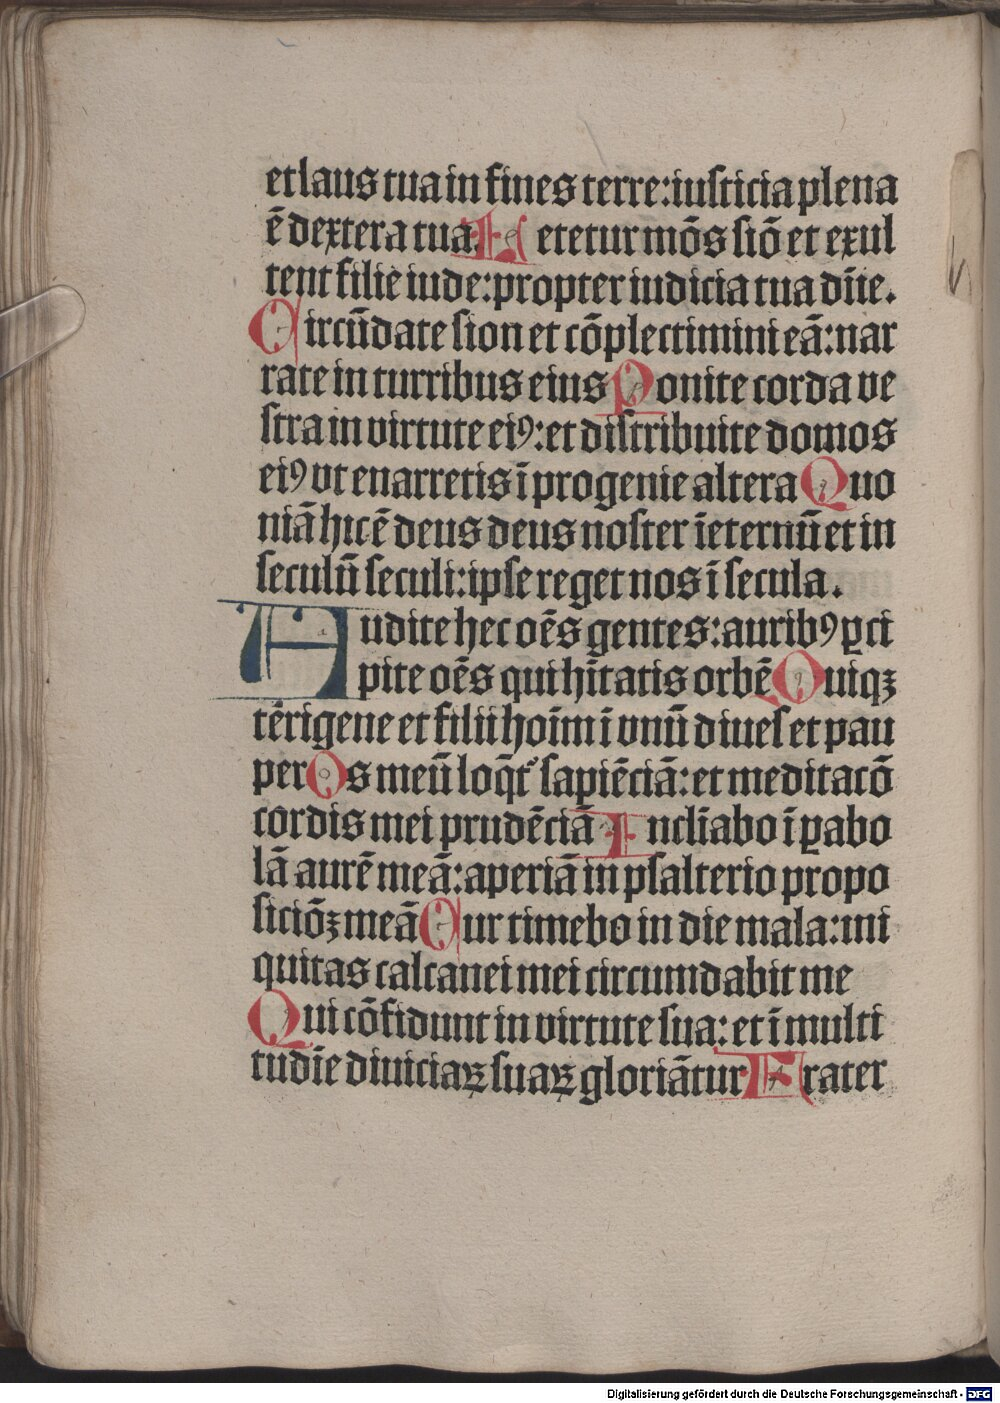 et laus tua in fines terre: iusticia plena
ē dextera tua. Letetur mōs siō et exul
tent filie iude: propter iudicia tua dn̄e.
Circūdate sion et cōplectimini eā: nar
rate in turribus eius Ponite corda ve
stra in virtute eiꝰ: et distribuite domos
eiꝰ vt enarretis ī progenie altera Quo
niā hic ē deus deus noster īeternū et in
seculū seculi: ipse reget nos ī secula.
Audite hec oēs gentes: auribꝰ ꝑci
pite oēs qui hītatis orbē Quiqꝫ
terrigene et filii hoīm ī vnū diues et pau
per Os meū loq̄t᷑ sapiēciā: et meditacō
cordis mei prudēciā Inclīabo ī ꝑabo
lā aurē meā: aperiā in psalterio propo
siciōꝫ meā Cur timebo in die mala: ini
quitas calcanei mei circumdabit me
Qui cōfidunt in virtute sua: et ī multi
tudīe diuiciaꝝ suaꝝ gloriātur Frater
Digitalisierung gefördert durch die Deutsche Forschungsgemeinschaft - DFG